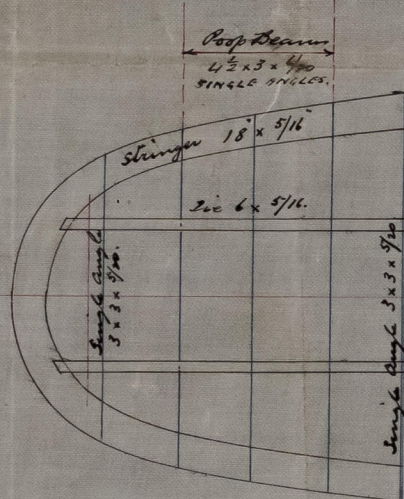 Poop Beams
4½ x 3 x 6/20
SINGLE ANGLES.
Stringer 18" x 5/16"
Tie 6 x 5/16.
Single Angle
3 x 3 x 5/20.
Single Angle 3 x 3 x 5/20